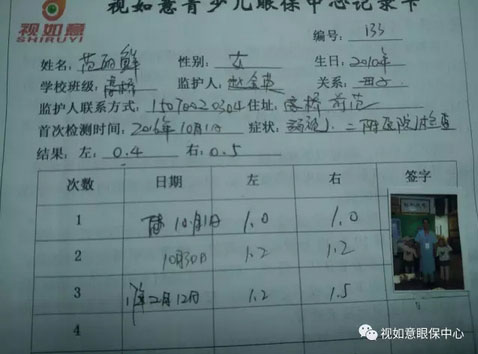 视如意青少儿眼保中心记录卡
视如意
SHIRUYI
编号：133
姓名：范丽鲜 性别：女 生日：2010年
学校班级：高桥 监护人：赵金英 关系：母子
监护人联系方式： 住址：高桥
首次检测时间：2016年10月1日 症状：
结果：左：0.4 右：0.5
次数 日期 左 右 签字
1 10月1日 1.0 1.0
2 10月30日 1.2 1.2
3 2月12日 1.2 1.5
4
视如意眼保中心